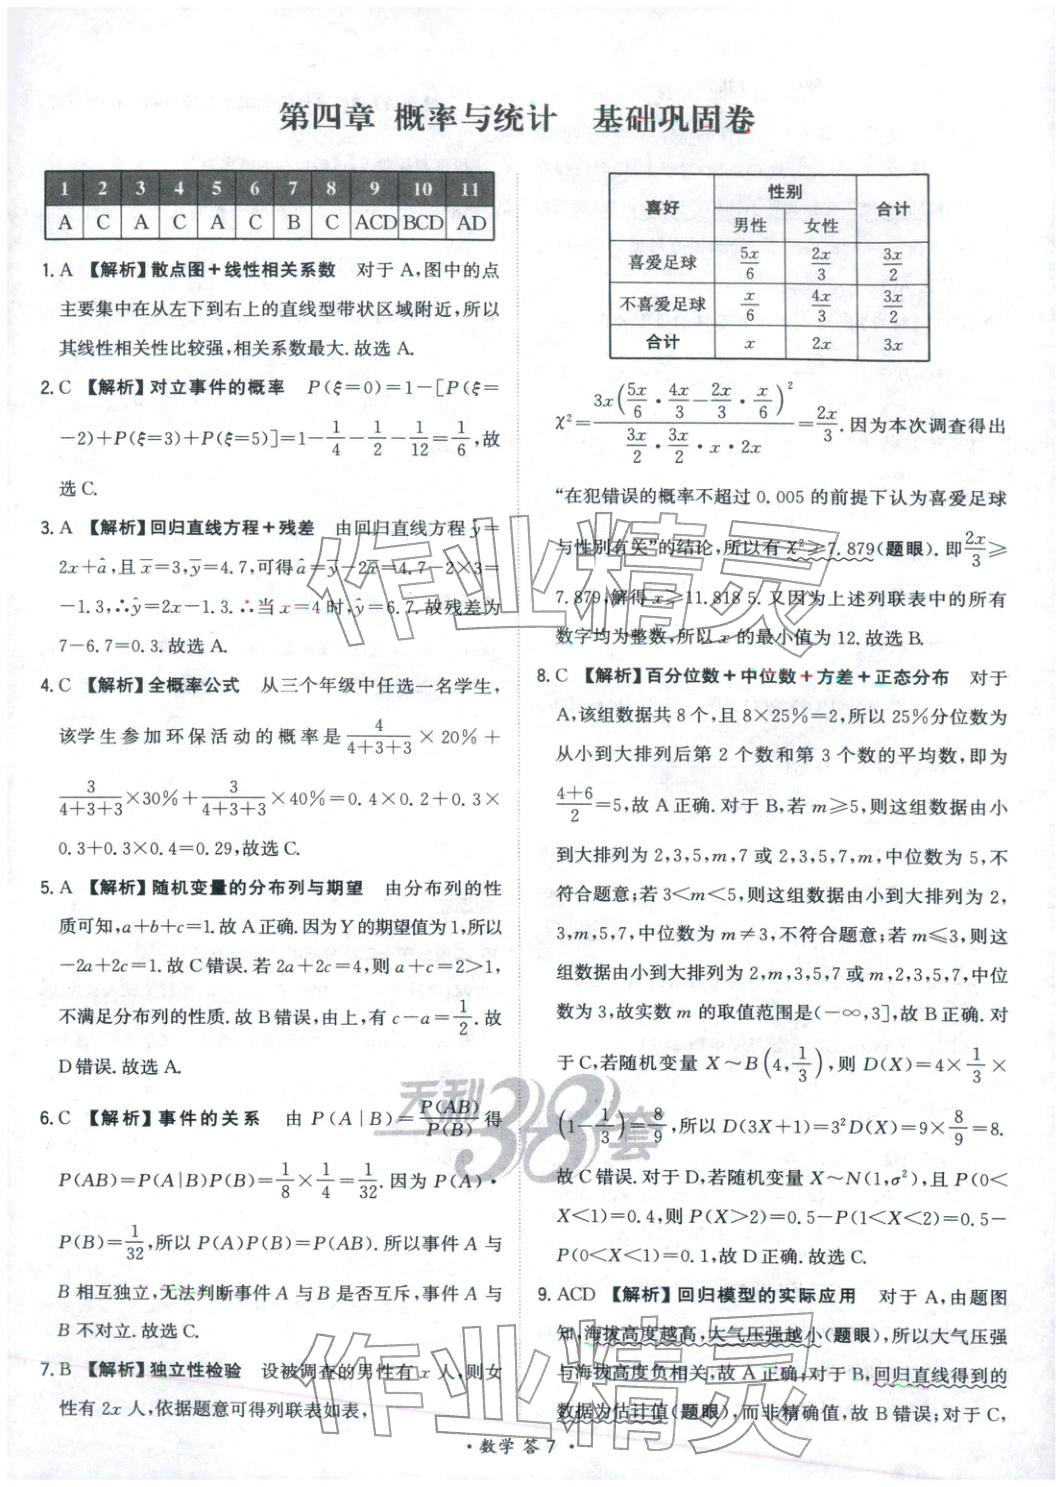 第四章 概率与统计 基础巩固卷
1 2 3 4 5 6 7 8 9 10 11
A C A C A C B C ACD BCD AD
1. A 【解析】散点图+线性相关系数 对于 A,图中的点
主要集中在从左下到右上的直线型带状区域附近,所以
其线性相关性比较强,相关系数最大. 故选 A.
2. C 【解析】对立事件的概率 P(ξ=0)=1-[P(ξ=
-2)+P(ξ=3)+P(ξ=5)]=1-1/4-1/2-1/12=1/6,故
选 C.
3. A 【解析】回归直线方程+残差 由回归直线方程 ŷ=
2x+â,且 x̄=3,ȳ=4.7,可得 â=ȳ-2x̄=4.7-2×3=
-1.3,∴ŷ=2x-1.3.∴当 x=4 时,ŷ=6.7. 故残差为
7-6.7=0.3. 故选 A.
4. C 【解析】全概率公式 从三个年级中任选一名学生,
该学生参加环保活动的概率是 4/(4+3+3)×20%+
3/(4+3+3)×30%+3/(4+3+3)×40%=0.4×0.2+0.3×
0.3+0.3×0.4=0.29,故选 C.
5. A 【解析】随机变量的分布列与期望 由分布列的性
质可知,a+b+c=1. 故 A 正确. 因为 Y 的期望值为 1,所以
-2a+2c=1. 故 C 错误. 若 2a+2c=4,则 a+c=2>1,
不满足分布列的性质. 故 B 错误,由上,有 c-a=1/2. 故
D 错误. 故选 A.
6. C 【解析】事件的关系 由 P(A|B)=P(AB)/P(B) 得
P(AB)=P(A|B)P(B)=1/8×1/4=1/32. 因为 P(A)·
P(B)=1/32,所以 P(A)P(B)=P(AB). 所以事件 A 与
B 相互独立,无法判断事件 A 与 B 是否互斥,事件 A 与
B 不对立. 故选 C.
7. B 【解析】独立性检验 设被调查的男性有 x 人,则女
性有 2x 人,依据题意可得列联表如表,
喜好 性别 合计
男性 女性
喜爱足球 5x/6 2x/3 3x/2
不喜爱足球 x/6 4x/3 3x/2
合计 x 2x 3x
χ²=3x(5x/6·4x/3-2x/3·x/6)²/(3x/2·3x/2·x·2x)=2x/3. 因为本次调查得出
“在犯错误的概率不超过 0.005 的前提下认为喜爱足球
与性别有关”的结论,所以有 χ²≥7.879(题眼). 即 2x/3≥
7.879,解得 x≥11.818 5. 又因为上述列联表中的所有
数字均为整数,所以 x 的最小值为 12. 故选 B.
8. C 【解析】百分位数+中位数+方差+正态分布 对于
A,该组数据共 8 个,且 8×25%=2,所以 25%分位数为
从小到大排列后第 2 个数和第 3 个数的平均数,即为
(4+6)/2=5,故 A 正确. 对于 B,若 m≥5,则这组数据由小
到大排列为 2,3,5,m,7 或 2,3,5,7,m,中位数为 5,不
符合题意;若 3<m<5,则这组数据由小到大排列为 2,
3,m,5,7,中位数为 m≠3,不符合题意;若 m≤3,则这
组数据由小到大排列为 2,m,3,5,7 或 m,2,3,5,7,中位
数为 3,故实数 m 的取值范围是(-∞,3],故 B 正确. 对
于 C,若随机变量 X~B(4,1/3),则 D(X)=4×1/3×
(1-1/3)=8/9,所以 D(3X+1)=3²D(X)=9×8/9=8.
故 C 错误. 对于 D,若随机变量 X~N(1,σ²),且 P(0<
X<1)=0.4,则 P(X>2)=0.5-P(1<X<2)=0.5-
P(0<X<1)=0.1,故 D 正确. 故选 C.
9. ACD 【解析】回归模型的实际应用 对于 A,由题图
知,海拔高度越高,大气压强越小(题眼),所以大气压强
与海拔高度负相关,故 A 正确;对于 B,回归直线得到的
数据为估计值(题眼),而非精确值,故 B 错误;对于 C,
· 数学 答 7 ·
作业精灵
天利38套
作业精灵